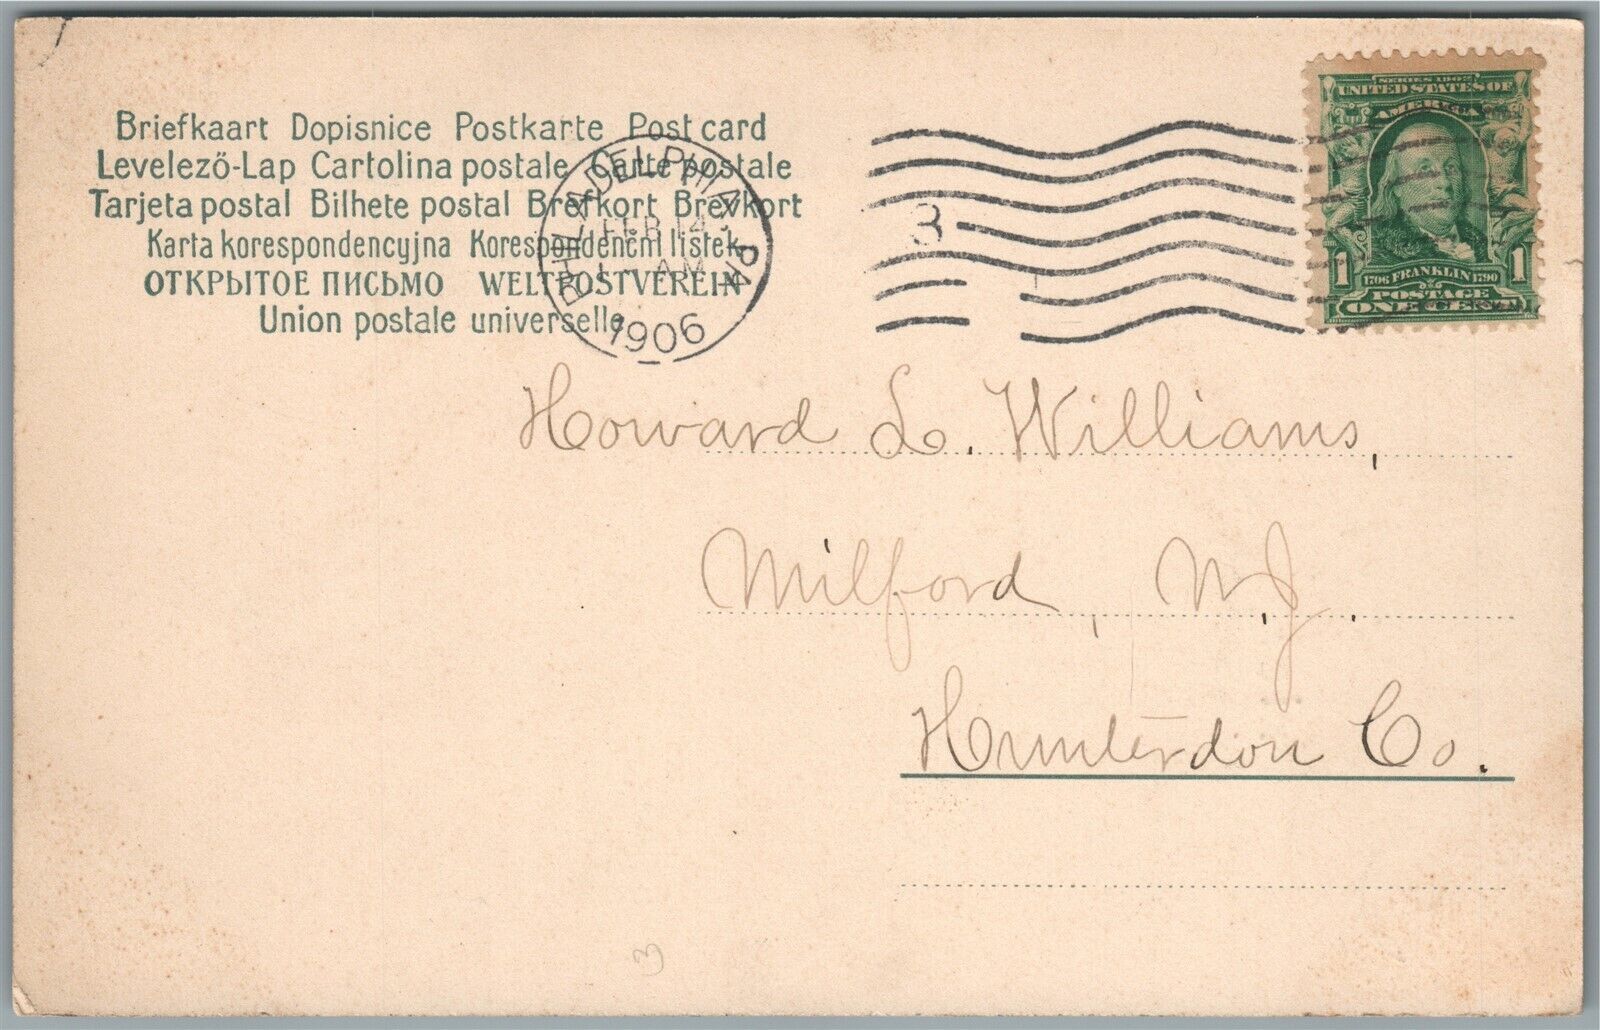 Briefkaart Dopisnice Postkarte Post card
Levelező-Lap Cartolina postale Carte postale
Tarjeta postal Bilhete postal Brefkort Brevkort
Karta korespondencyjna Korespondenční listek
ОТКРЫТОЕ ПИСЬМО WELTPOSTVEREIN
Union postale universelle
PHILADELPHIA PA
FEB 14
AM
1906
3
SERIES 1902
UNITED STATES OF
AMERICA
1 1706 FRANKLIN 1790 1
POSTAGE
ONE CENT
Howard L. Williams,
Milford, N.J.
Hunterdon Co.
3